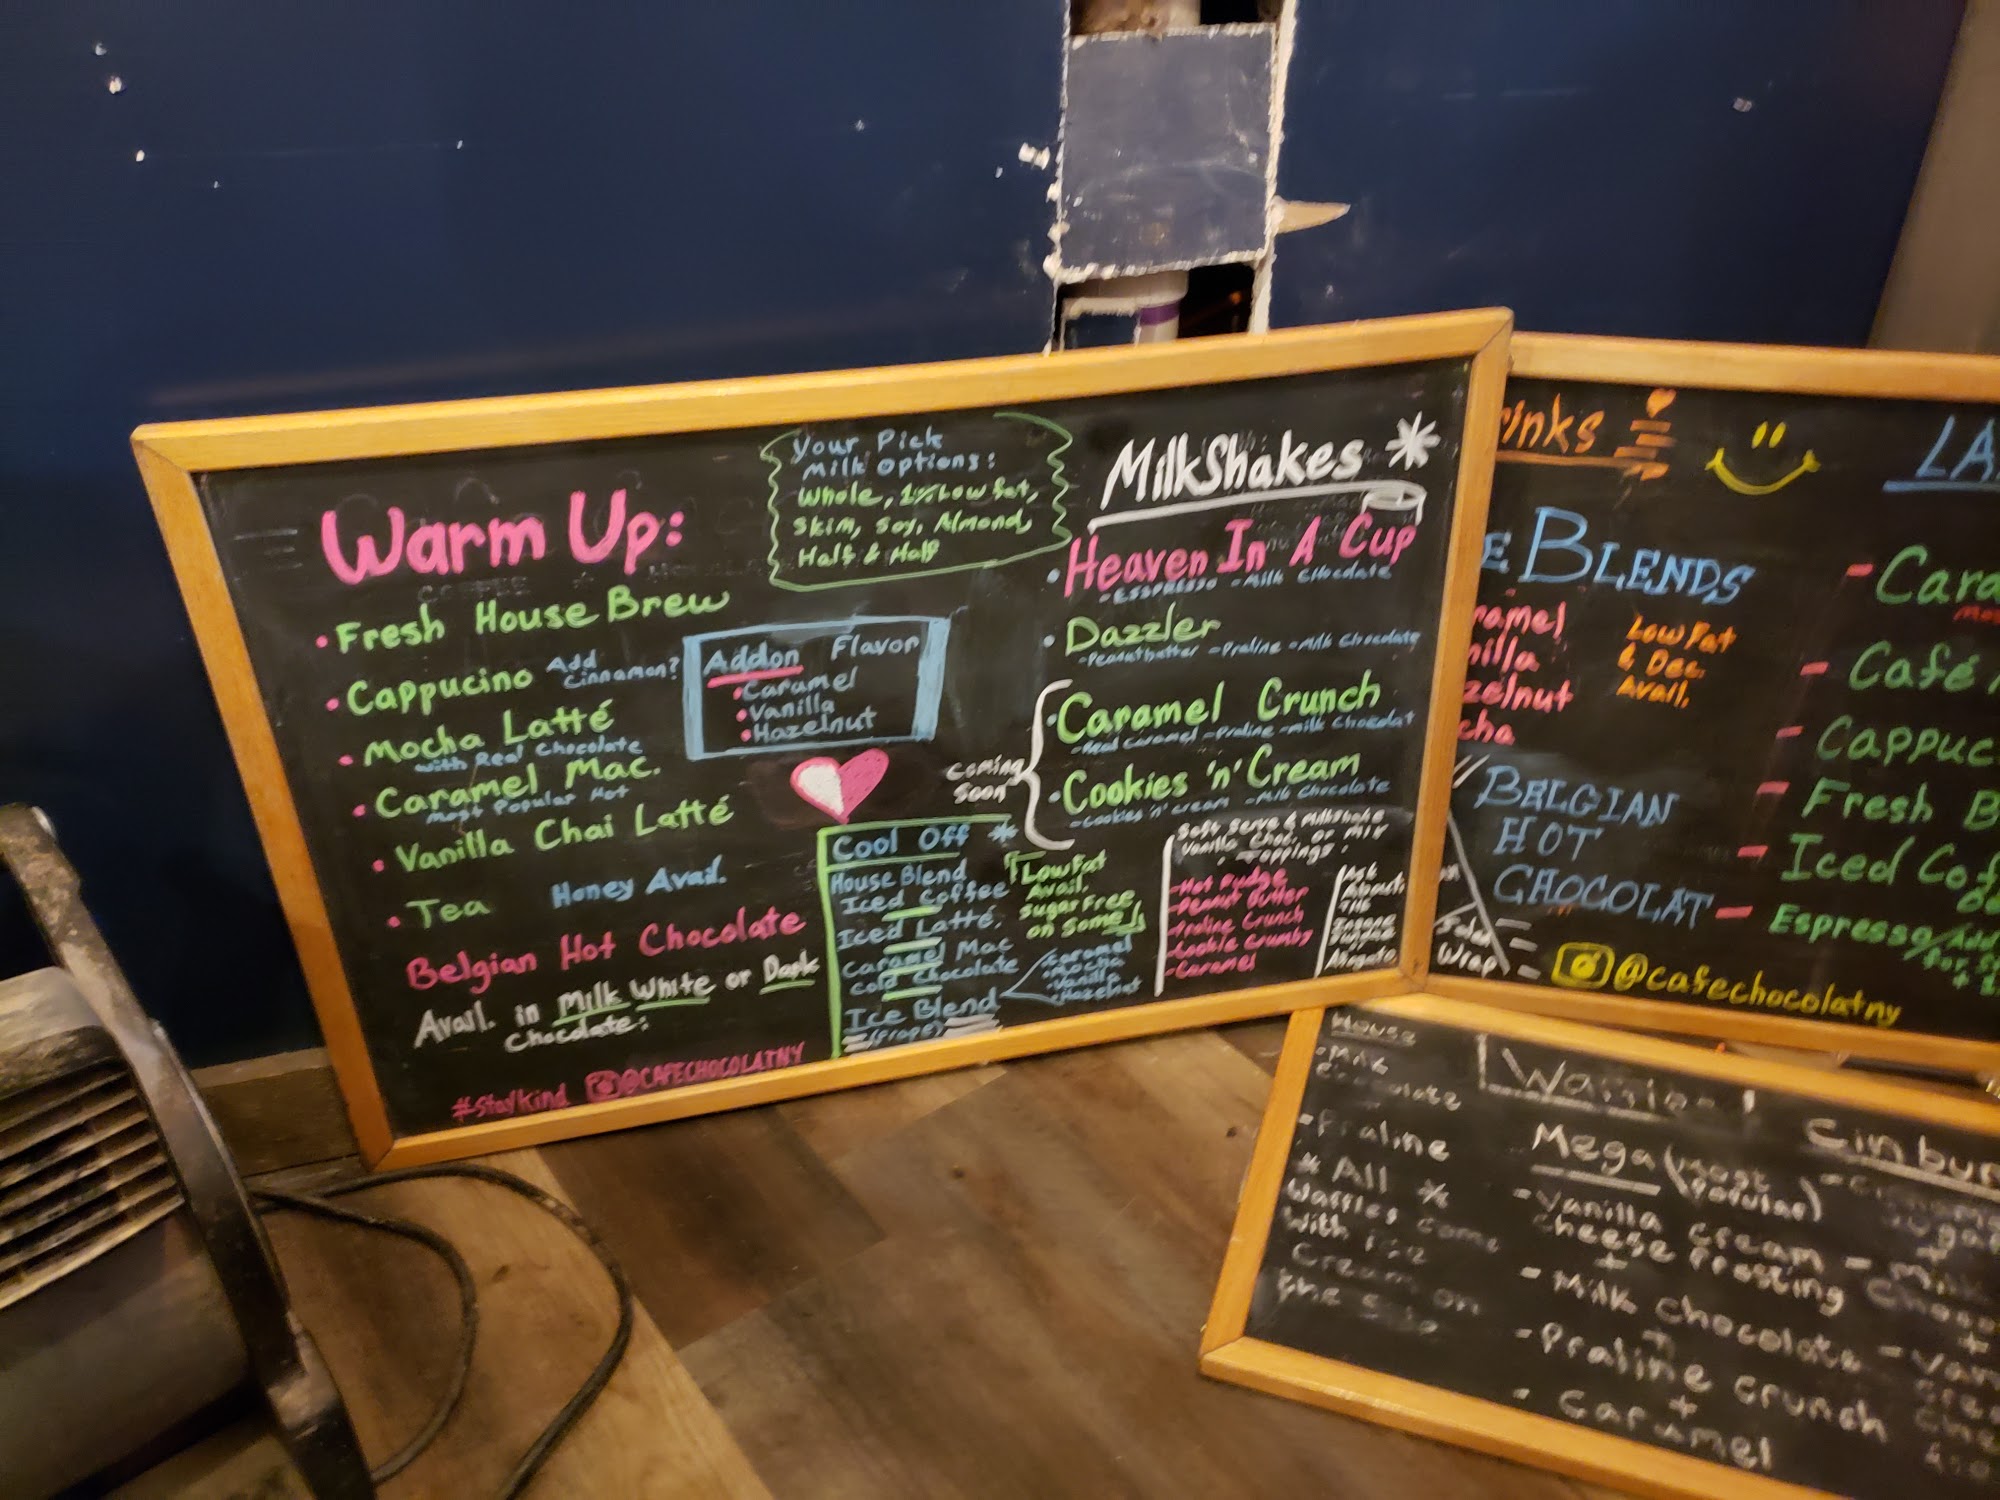 Warm Up:
• Fresh House Brew
• Cappucino Add Cinnamon?
• Mocha Latté
with Real Chocolate
• Caramel Mac.
Most Popular Hot
• Vanilla Chai Latté
• Tea Honey Avail.
Belgian Hot Chocolate
Avail. in Milk White or Dark
Chocolate:
#staykind @CAFECHOCOLATNY
Your Pick
Milk Options:
Whole, 1% Low fat,
Skim, Soy, Almond,
Half & Half
Addon Flavor
• Caramel
• Vanilla
• Hazelnut
Cool Off *
House Blend
Iced Coffee
Iced Latté.
Caramel Mac
Cold Chocolate
Ice Blend
(Frape)
Low Fat
Avail.
Sugar Free
on Some
Caramel
Mocha
Vanilla
Hazelnut
MilkShakes *
• Heaven In A Cup
- Esspresso - Milk Chocolate
• Dazzler
- Peanutbutter - Praline - Milk Chocolate
Coming
Soon
• Caramel Crunch
- Real Caramel - Praline - Milk Chocolat
• Cookies 'n' Cream
- Cookies 'n' Cream - Milk Chocolate
Soft Serve & Milkshake
Vanilla Choc. or Mix
• Toppings •
- Hot Fudge
- Peanut Butter
- Praline Crunch
- Cookie Crumby
- Caramel
Ask
About
Affogato
rinks
E BLENDS
ramel
nilla
zelnut
cha
Low Fat
& Dec.
Avail.
BELGIAN
HOT
CHOCOLAT
Wrap
@cafechocolatny
LA
- Cara
- Café
- Cappuc
- Fresh B
- Iced Cof
- Espresso/Add
House
- Milk
Chocolate
- Praline
* All *
Waffles come
with ice
Cream on
the side
Mega (Most Popular)
- Vanilla cream
cheese frosting
+
- Milk Chocolate
+
- Praline crunch
+
- Caramel
Cinbun
- Milk